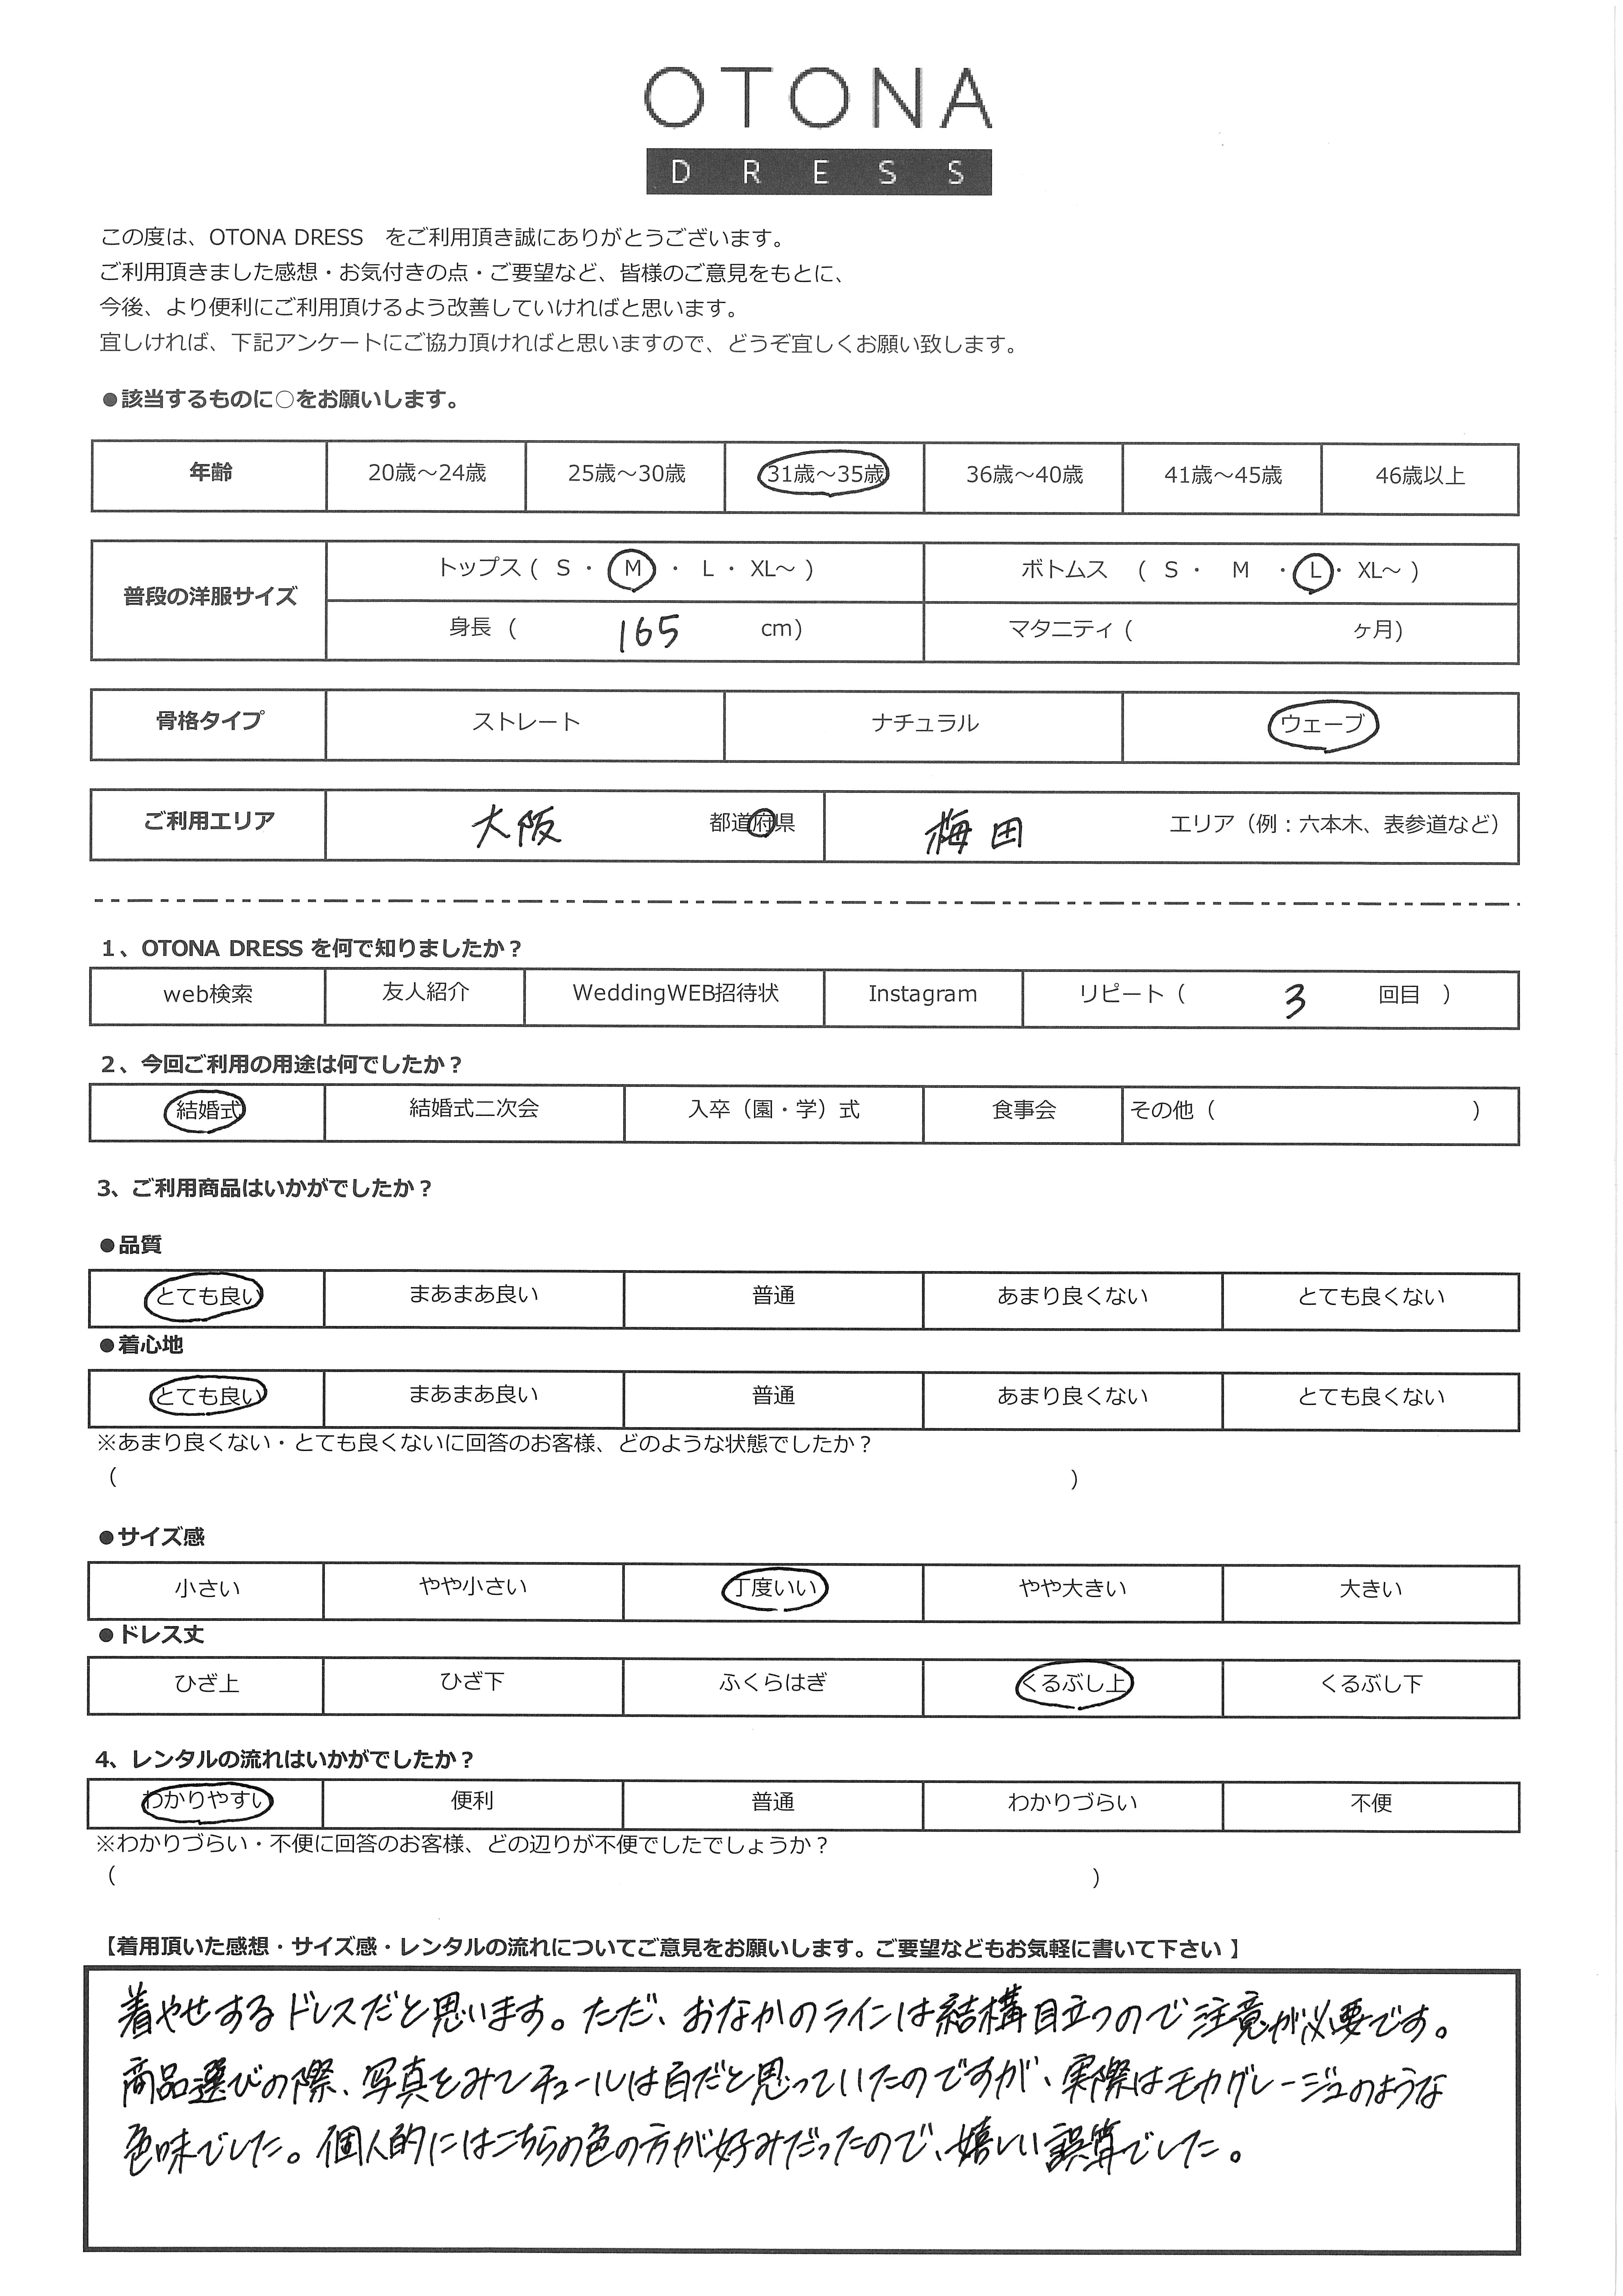 OTONA
DRESS
この度は、OTONA DRESS　をご利用頂き誠にありがとうございます。
ご利用頂きました感想・お気付きの点・ご要望など、皆様のご意見をもとに、
今後、より便利にご利用頂けるよう改善していければと思います。
宜しければ、下記アンケートにご協力頂ければと思いますので、どうぞ宜しくお願い致します。
●該当するものに○をお願いします。
年齢 20歳～24歳 25歳～30歳 31歳～35歳 36歳～40歳 41歳～45歳 46歳以上
普段の洋服サイズ トップス ( S ・ M ・ L ・ XL～ ) ボトムス ( S ・ M ・ L ・ XL～ )
身長 ( 165 cm) マタニティ ( ヶ月)
骨格タイプ ストレート ナチュラル ウェーブ
ご利用エリア 大阪 都道府県 梅田 エリア（例：六本木、表参道など）
1、OTONA DRESS を何で知りましたか？
web検索 友人紹介 WeddingWEB招待状 Instagram リピート（ 3 回目 ）
2、今回ご利用の用途は何でしたか？
結婚式 結婚式二次会 入卒（園・学）式 食事会 その他（ ）
3、ご利用商品はいかがでしたか？
●品質
とても良い まあまあ良い 普通 あまり良くない とても良くない
●着心地
とても良い まあまあ良い 普通 あまり良くない とても良くない
※あまり良くない・とても良くないに回答のお客様、どのような状態でしたか？
（ ）
●サイズ感
小さい やや小さい 丁度いい やや大きい 大きい
●ドレス丈
ひざ上 ひざ下 ふくらはぎ くるぶし上 くるぶし下
4、レンタルの流れはいかがでしたか？
わかりやすい 便利 普通 わかりづらい 不便
※わかりづらい・不便に回答のお客様、どの辺りが不便でしたでしょうか？
（ ）
【着用頂いた感想・サイズ感・レンタルの流れについてご意見をお願いします。ご要望などもお気軽に書いて下さい 】
着やせするドレスだと思います。ただ、おなかのラインは結構目立つので注意が必要です。
商品選びの際、写真をみてチュールは白だと思っていたのですが、実際はモカグレージュのような
色味でした。個人的にはこちらの色の方が好みだったので、嬉しい誤算でした。